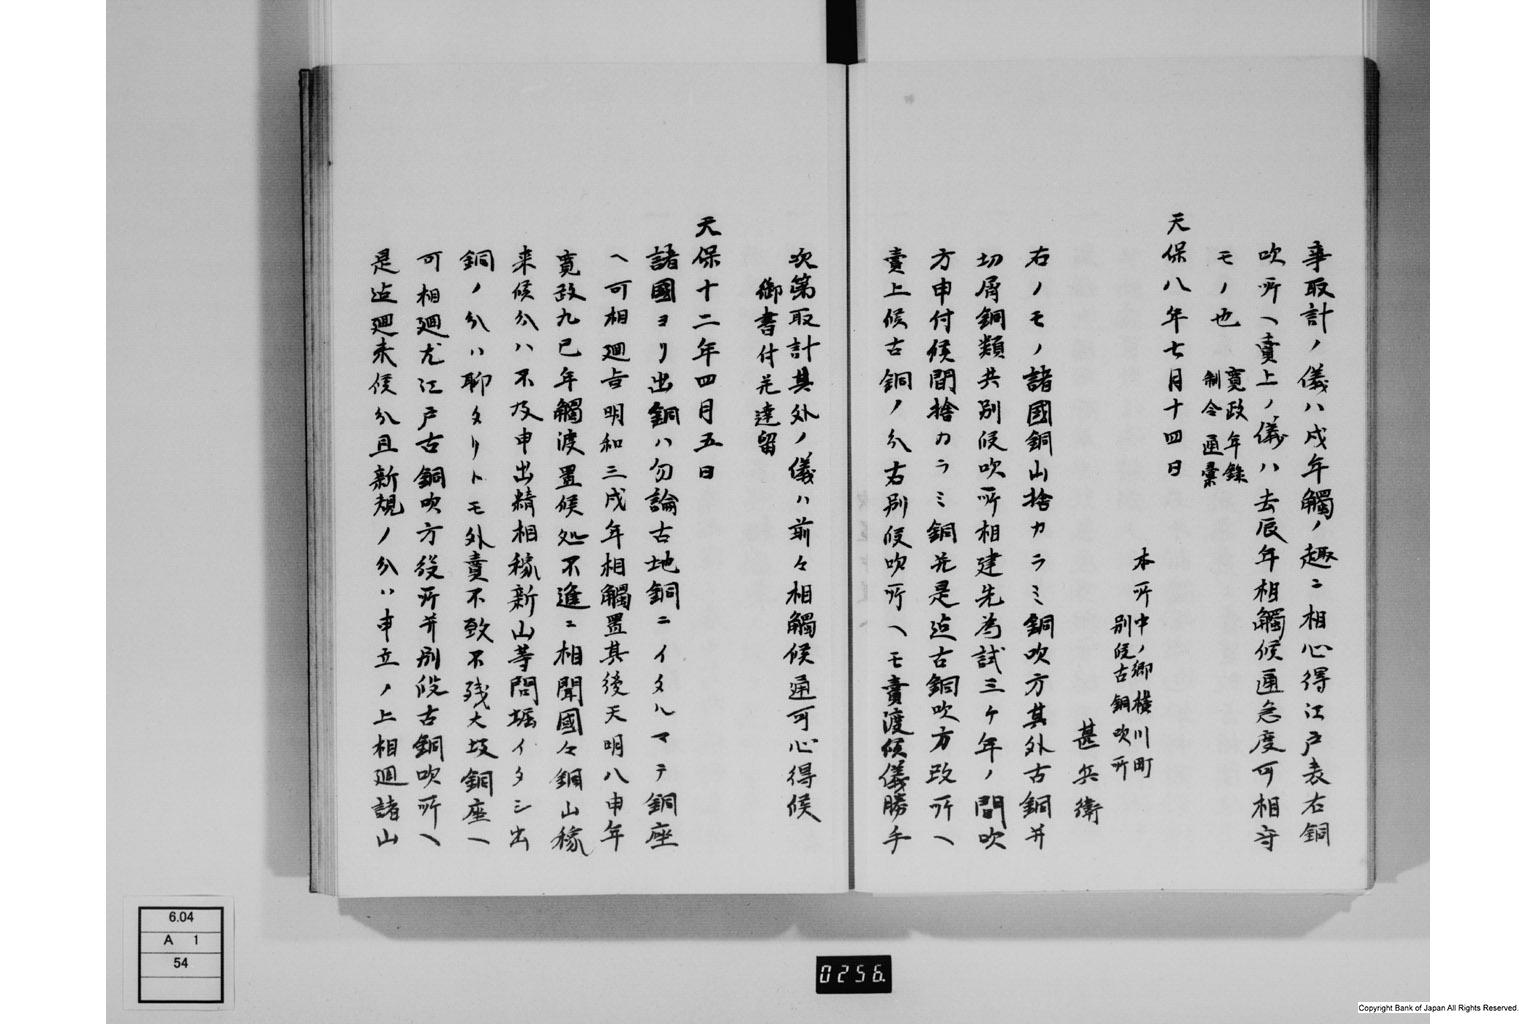 事取計ノ儀ハ戌年觸ノ趣ニ相心得江戸表右銅
吹所ヘ賣上ノ儀ハ去辰年相觸候通急度可相守
モノ也
寛政年録
制令通彙
天保八年七月十四日
本所中ノ郷横川町
別段古銅吹所
甚兵衛
右ノモノ諸國銅山捨カラミ銅吹方其外古銅并
切屑銅類共別段吹所相建先為試三ケ年ノ間吹
方申付候間捨カラミ銅并是迠古銅吹方改所ヘ
賣上候古銅ノ分右別段吹所ヘモ賣渡候儀勝手
次第取計其外ノ儀ハ前々相觸候通可心得候
御書付并達留
天保十二年四月五日
諸國ヨリ出銅ハ勿論古地銅ニイタルマテ銅座
ヘ可相廻旨明和三戌年相觸置其後天明八申年
寛政九巳年觸渡置候処不進ニ相聞國々銅山稼
来候分ハ不及申出精相稼新山等問堀イタシ出
銅ノ分ハ聊タリトモ外賣不致不残大坂銅座ヘ
可相廻尤江戸古銅吹方役所并別段古銅吹所ヘ
是迠廻来候分且新規ノ分ハ申立ノ上相廻諸山
6.04
A 1
54
0256.
Copyright Bank of Japan All Rights Reserved.